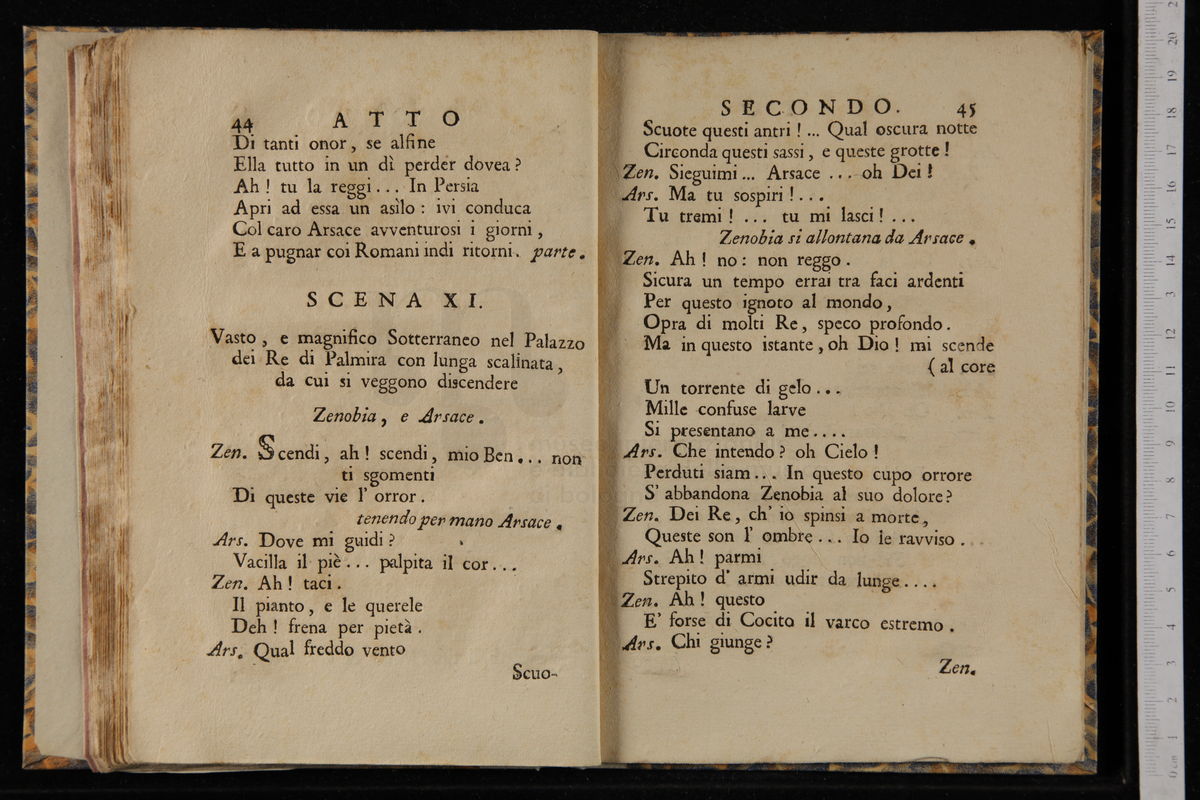 44 ATTO
Di tanti onor, se alfine
Ella tutto in un dì perder dovea?
Ah! tu la reggi... In Persia
Apri ad essa un asilo: ivi conduca
Col caro Arsace avventurosi i giorni,
E a pugnar coi Romani indi ritorni. parte.
SCENA XI.
Vasto, e magnifico Sotterraneo nel Palazzo
dei Re di Palmira con lunga scalinata,
da cui si veggono discendere
Zenobia, e Arsace.
Zen. Scendi, ah! scendi, mio Ben... non
ti sgomenti
Di queste vie l' orror.
tenendo per mano Arsace.
Ars. Dove mi guidi?
Vacilla il piè... palpita il cor...
Zen. Ah! taci.
Il pianto, e le querele
Deh! frena per pietà.
Ars. Qual freddo vento
Scuo-
SECONDO. 45
Scuote questi antri!... Qual oscura notte
Circonda questi sassi, e queste grotte!
Zen. Sieguimi... Arsace ... oh Dei!
Ars. Ma tu sospiri!...
Tu tremi! ... tu mi lasci! ...
Zenobia si allontana da Arsace.
Zen. Ah! no: non reggo.
Sicura un tempo errai tra faci ardenti
Per questo ignoto al mondo,
Opra di molti Re, speco profondo.
Ma in questo istante, oh Dio! mi scende
(al core
Un torrente di gelo...
Mille confuse larve
Si presentano a me....
Ars. Che intendo? oh Cielo!
Perduti siam... In questo cupo orrore
S' abbandona Zenobia al suo dolore?
Zen. Dei Re, ch' io spinsi a morte,
Queste son l' ombre... Io le ravviso...
Ars. Ah! parmi
Strepito d' armi udir da lunge....
Zen. Ah! questo
E' forse di Cocito il varco estremo.
Ars. Chi giunge?
Zen.